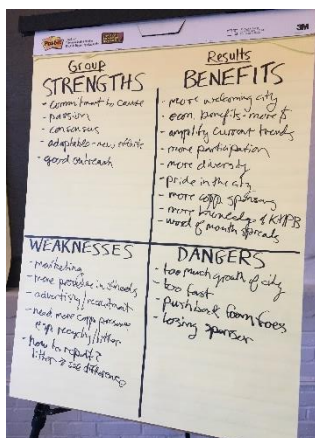 Post-it
3M
Group
STRENGTHS
- commitment to cause
- passion
- consensus
- adaptable - new efforts
- good outreach
Results
BENEFITS
- more welcoming city
- econ. benefits - more $
- amplify current trends
- more participation
- more diversity
- pride in the city
- more corp. sponsors
- more knowledge of KHPB
- word of mouth spreads
WEAKNESSES
- marketing
- more presence in schools
- advertising/recruitment
- need more corp presence
esp. recycling/litter
- how to report?
litter → see differences
DANGERS
- too much growth of city
- too fast
- push back from foes
- losing sponsor